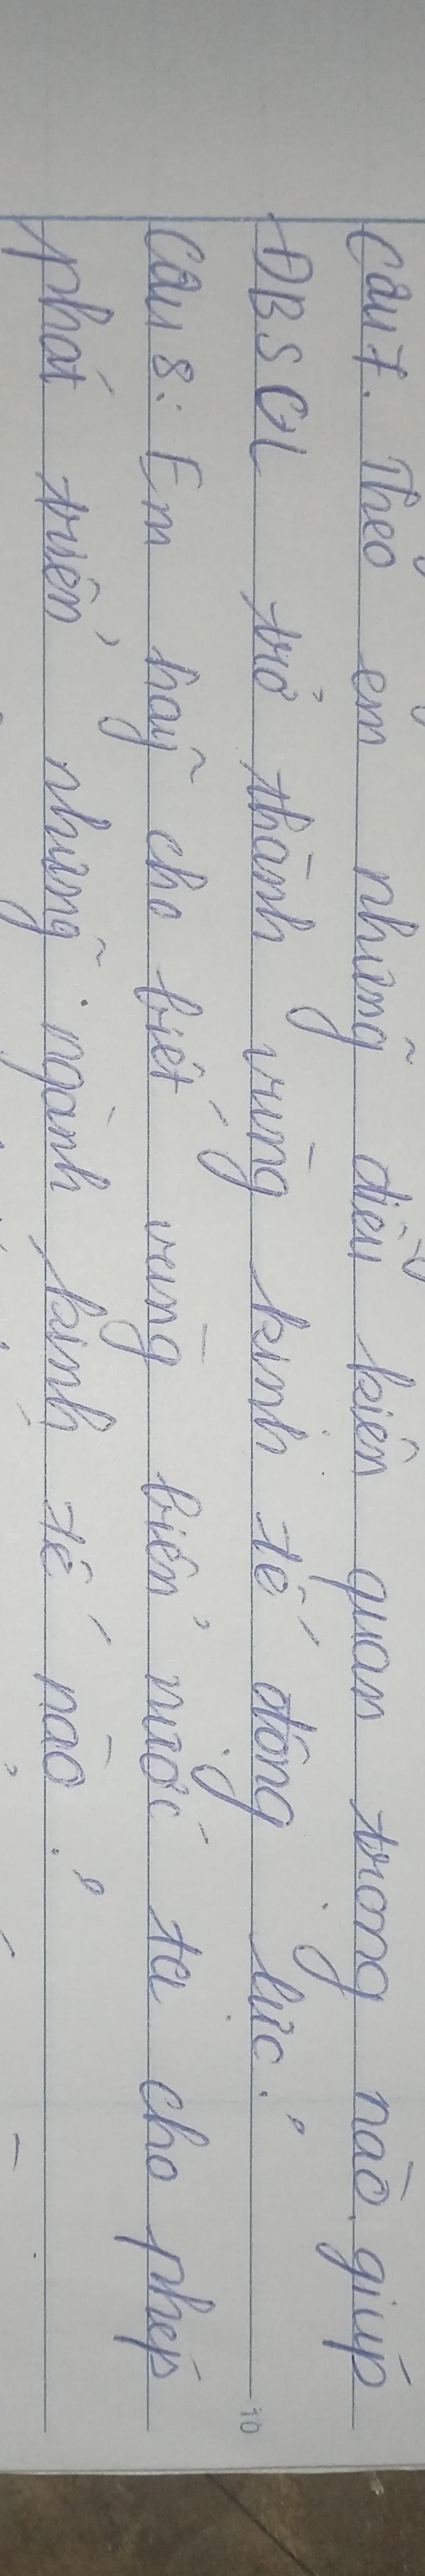 Câu 7. Theo em những điều kiện quan trọng nào giúp
ĐBSCL trở thành vùng kinh tế động lực?
Câu 8: Em hãy cho biết vùng biển nước ta cho phép
phát triển những ngành kinh tế nào?
10